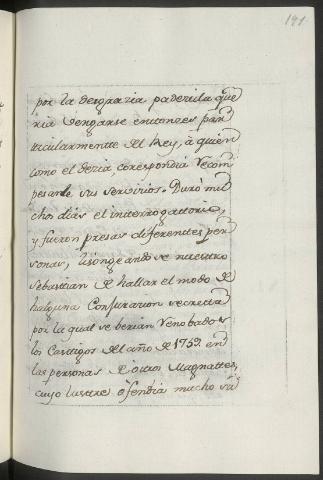 191.
por la desgrazia padezida que
ria Vengarse enttonzes par
ticularmentte del Rey, à quien
como el dezia corespondia Recom
pesarle sus servizios. Durò mu
chos dias el initerrogattorio,
y fueron presas diferenttes per
sonas, lisongeandose nuestro
Sebasttian de hallar el modo de
halguna Conjurazion secretta
por la qual se berian Renobados
los Casttigos del año de 1759. en
las personas de ottros Magnattes,
cuyo lusttre ofendia mucho su